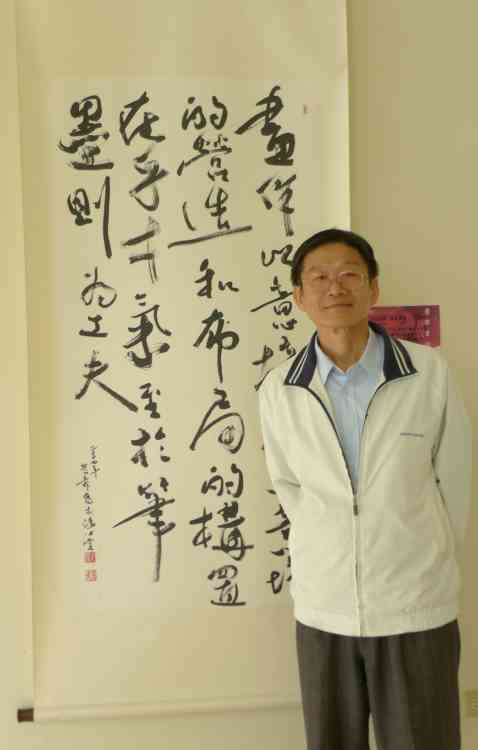 畫作以意境
的營造和布局的構置
在乎才氣至於筆
墨則為工夫